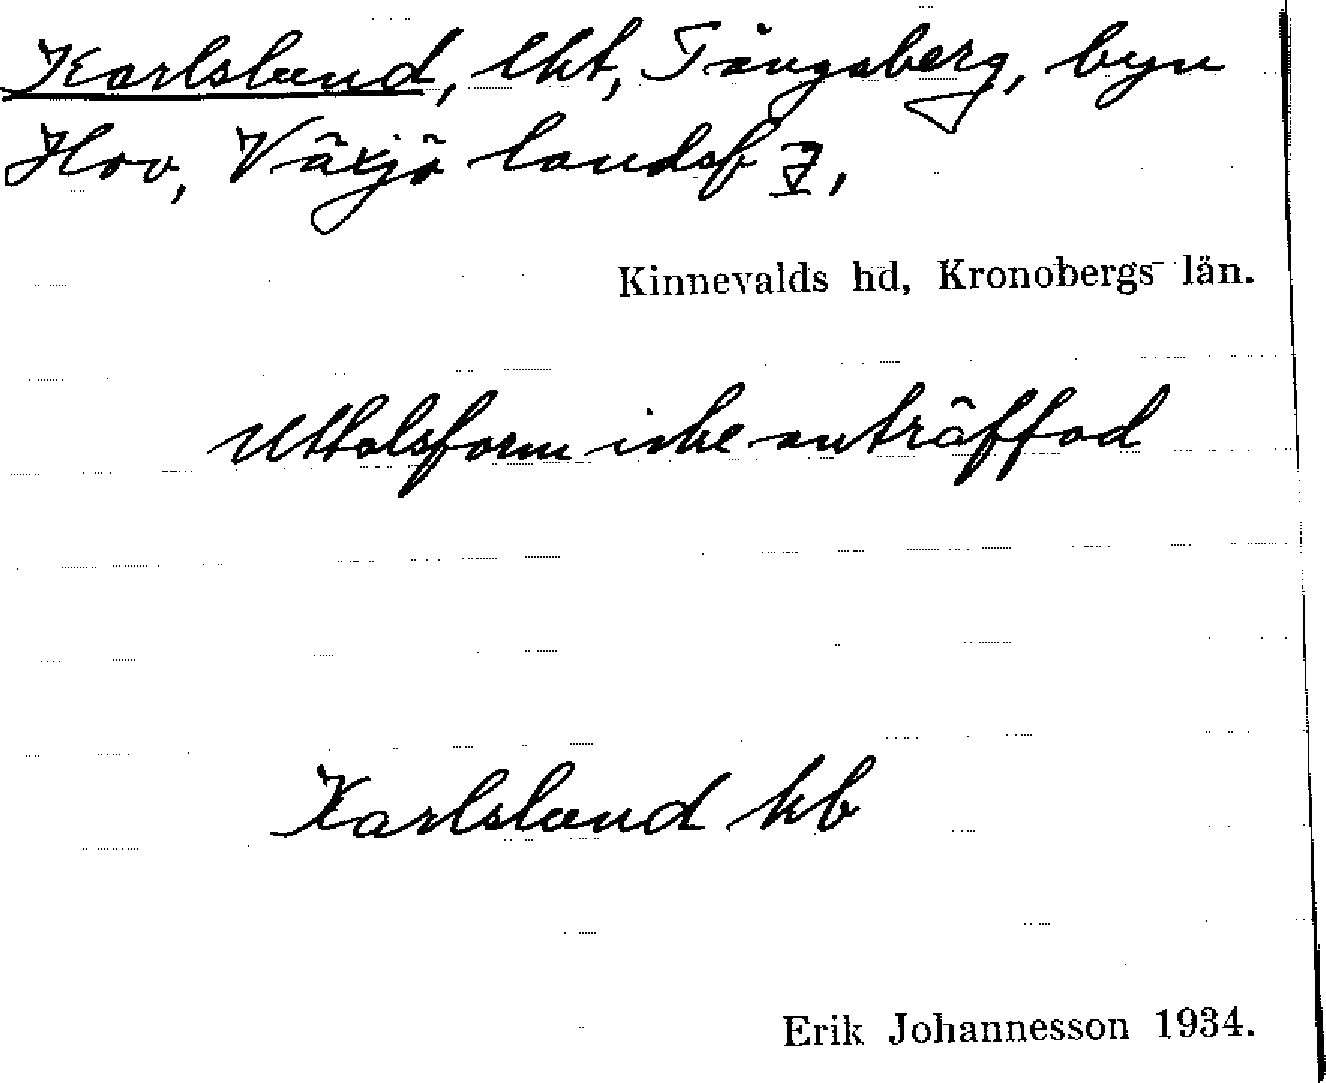 Karlslund, lht, Tängsberg, byn
Hov, Växjö landsf I,
Kinnevalds hd, Kronobergs län.
Uttalsform icke anträffad
Karlslund kb
Erik Johannesson 1934.